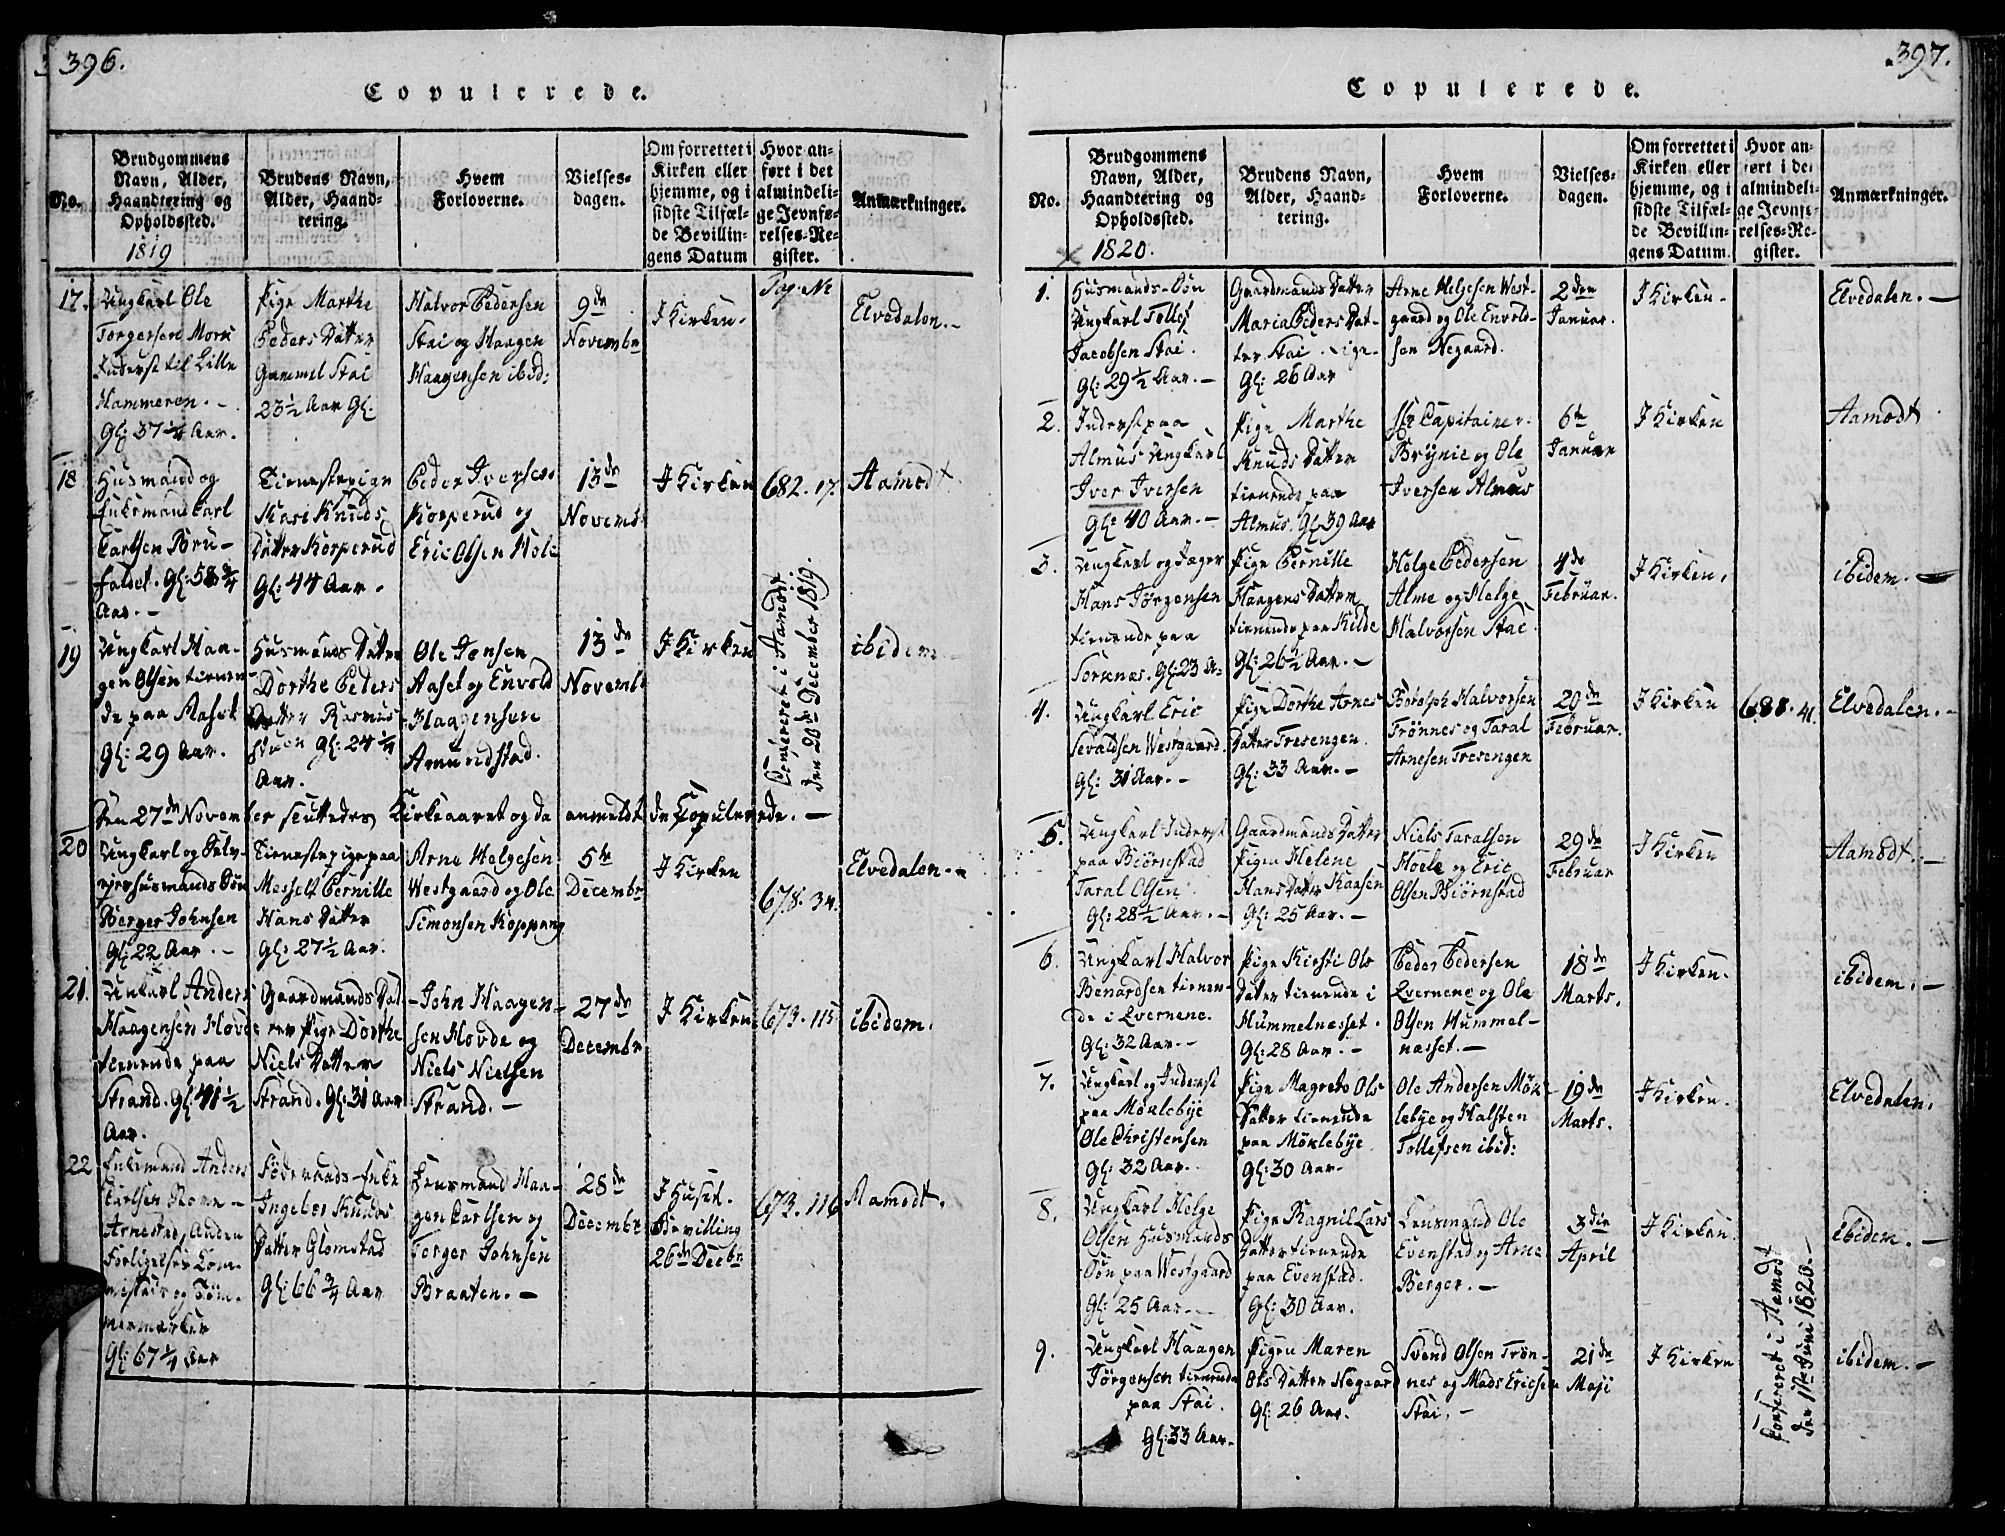 396.
Copulerede.
No.
Brudgommens Navn, Alder, Haandtering og Opholdssted.
1819
Brudens Navn, Alder, Haandtering.
Hvem Forloverne.
Vielses-dagen.
Om forrettet i Kirken eller hjemme, og i sidste Tilfælde Bevillingens Datum
Hvor anført i det almindelige Jevnførelses-Register.
Anmærkninger.
Pag. No
17.
Ungkarl Ole
Torgersen Mork
Inderst til Lille
Hammeren. -
Gl: 37 1/4 Aar.
Pige Marthe
Peders Datter
Gammel Stai
23 1/2 Aar Gl.
Halvor Pedersen
Stai og Haagen
Haagensen ibid:
9de
Novembr
I Kirken.
Elvedalen. -
18
Husmand og
Enkemand Carl
Carlsen Bru-
falset. Gl: 58 3/4
Aar. -
Tienestepige
Kari Knuds
Datter Korperud
Gl: 44 Aar.
Peder Iversen
Korperud og
Eric Olsen Hole
13de
Novemb
I Kirken
682. 17.
Aamodt.
19
Ungkarl Haa-
gen Olsen tienen-
de paa Aaset
Gl: 29 Aar.
Husmands Datter
Dorthe Peders
Datter Rasmus
Stuen Gl: 24 1/4
Aar.
Ole Jonsen
Aaset og Envold
Haagensen
Amundstad.
13de
Novemb
I Kirken
Confereret i Aamodt
den 20de December 1819.
ibidem. -
Den 27de November sluttedes Kirkeaaret og da anmeldt de Copulerede. -
20
Ungkarl og Selv-
ejerhusmands Søn
Berger Johnsen
Gl: 22 Aar. -
Tienestepige paa
Messelt Pernille
Hans Datter
Gl: 27 1/2 Aar.
Arne Helgesen
Westgaard og Ole
Simonsen Koppang
5te
Decembr
I Kirken
678. 34.
Elvedalen. -
21.
Unkarl Anders
Haagensen Hovde
tienende paa
Strand. Gl: 41 1/2
Aar.
Gaardmands Dat-
ter Pige Dorthe
Niels Datter
Strand. Gl: 31 Aar
John Haagen-
sen Hovde og
Niels Nielsen
Strand. -
27de
Decembr
I Kirken
673. 115
ibidem.
22
Enkemand Anders
Carlsen
Arnestad, Anden
Forligelses Com-
missair og Tøm-
mermerker
Gl: 67 1/4 Aar
Føderaads-Enke
Ingebor Knuds
Datter Glomstad
Gl: 66 3/4 Aar
Lensmand Haa-
gen Carlsen og
Torger Johnsen
Braaten. -
28de
Decembr
I Huset.
Bevilling
26de Decbr
673. 116
Aamodt.
397.
Copulerede.
No.
Brudgommens Navn, Alder, Haandtering og Opholdssted.
1820.
Brudens Navn, Alder, Haandtering.
Hvem Forloverne.
Vielses-dagen.
Om forrettet i Kirken eller hjemme, og i sidste Tilfælde Bevillingens Datum.
Hvor anført i det almindelige Jevnførelses-Register.
Anmærkninger.
1.
Husmands-Søn
Ungkarl Tollef
Jacobsen Stai.
Gl: 29 1/2 Aar. -
Gaardmands Datter
Maria Peders Dat-
ter Stai.
Gl: 26 Aar
Arne Helgesen West-
gaard og Ole Envold-
sen Negaard.
2den
Januar.
I Kirken.
Elvedalen. -
2.
Inderst paa
Almus Ungkarl
Iver Iversen
Gl: 40 Aar. -
Pige Marthe
Knuds Datter
tienende paa
Almus. Gl: 39 Aar
Hr Capitainer
Brynie og Ole
Iversen Almus
6te
Januar
I Kirken
Aamodt
3.
Ungkarl og Jæger
Hans Jørgensen
tienende paa
Sorknæs. Gl: 23 A.
Pige Pernille
Haagens Datter
tienende paa Kilde
Gl: 26 1/2 Aar. -
Helge Pedersen
Alme og Helge
Halvorsen Stai
4de
Februar.
I Kirken.
ibidem. -
4.
Ungkarl Eric
Sevaldsen Westgaard.
Gl: 31 Aar. -
Pige Dorthe Arnes
Datter Tresengen.
Gl: 33 Aar. -
Botolph Halvorsen
Trønnes og Taral
Arnesen Tresengen
20de
Februar.
I Kirken
688. 41.
Elvedalen. -
5.
Ungkarl Inderst
paa Biørnestad
Taral Olsen
Gl: 28 1/2 Aar. -
Gaardmands Datter
Pigen Helene
Hans Datter Kaasen
Gl: 25 Aar. -
Niels Taralsen
Hoele og Eric
Olsen Biørnstad
29de
Februar
I Kirken
Aamodt. -
6.
Ungkarl Halvor
Benardsen tienen-
de i Qvernene.
Gl: 32 Aar. -
Pige Kirsti Ols
Datter tienende i
Hummelnæsset.
Gl: 28 Aar. -
Peder Pedersen
Qvernene og Ole
Olsen Hummel-
næsset. -
18de
Marts.
I Kirken.
ibidem. -
7.
Ungkarl og Inderst
paa Møklebye
Ole Christensen
Gl: 32 Aar.
Pige Magrete Ols
Datter tienende
paa Møklebye
Gl: 30 Aar.
Ole Andersen Møk-
lebye og Halsten
Tollefsen ibid:
19de
Marts.
I Kirken.
Elvedalen.
8.
Ungkarl Helge
Olsen Husmands
Søn paa Westgaard
Gl: 25 Aar. -
Pige Ragnil Lars
Datter tienende
paa Evenstad.
Gl: 30 Aar.
Lensmand Ole
Evenstad og Arne
Berger. -
3die
April
I Kirken.
ibidem. -
9.
Ungkarl Haagen
Jørgensen tienende
paa Stai.
Gl: 33 Aar.
Pigen Maren
Ols Datter Negaard
Gl: 26 Aar.
Svend Olsen Trøn-
nes og Mads Ericsen
Stai. -
21de
Maji
I Kirken
Confereret i Aamodt
den 1ste Juni 1820. -
ibidem. -